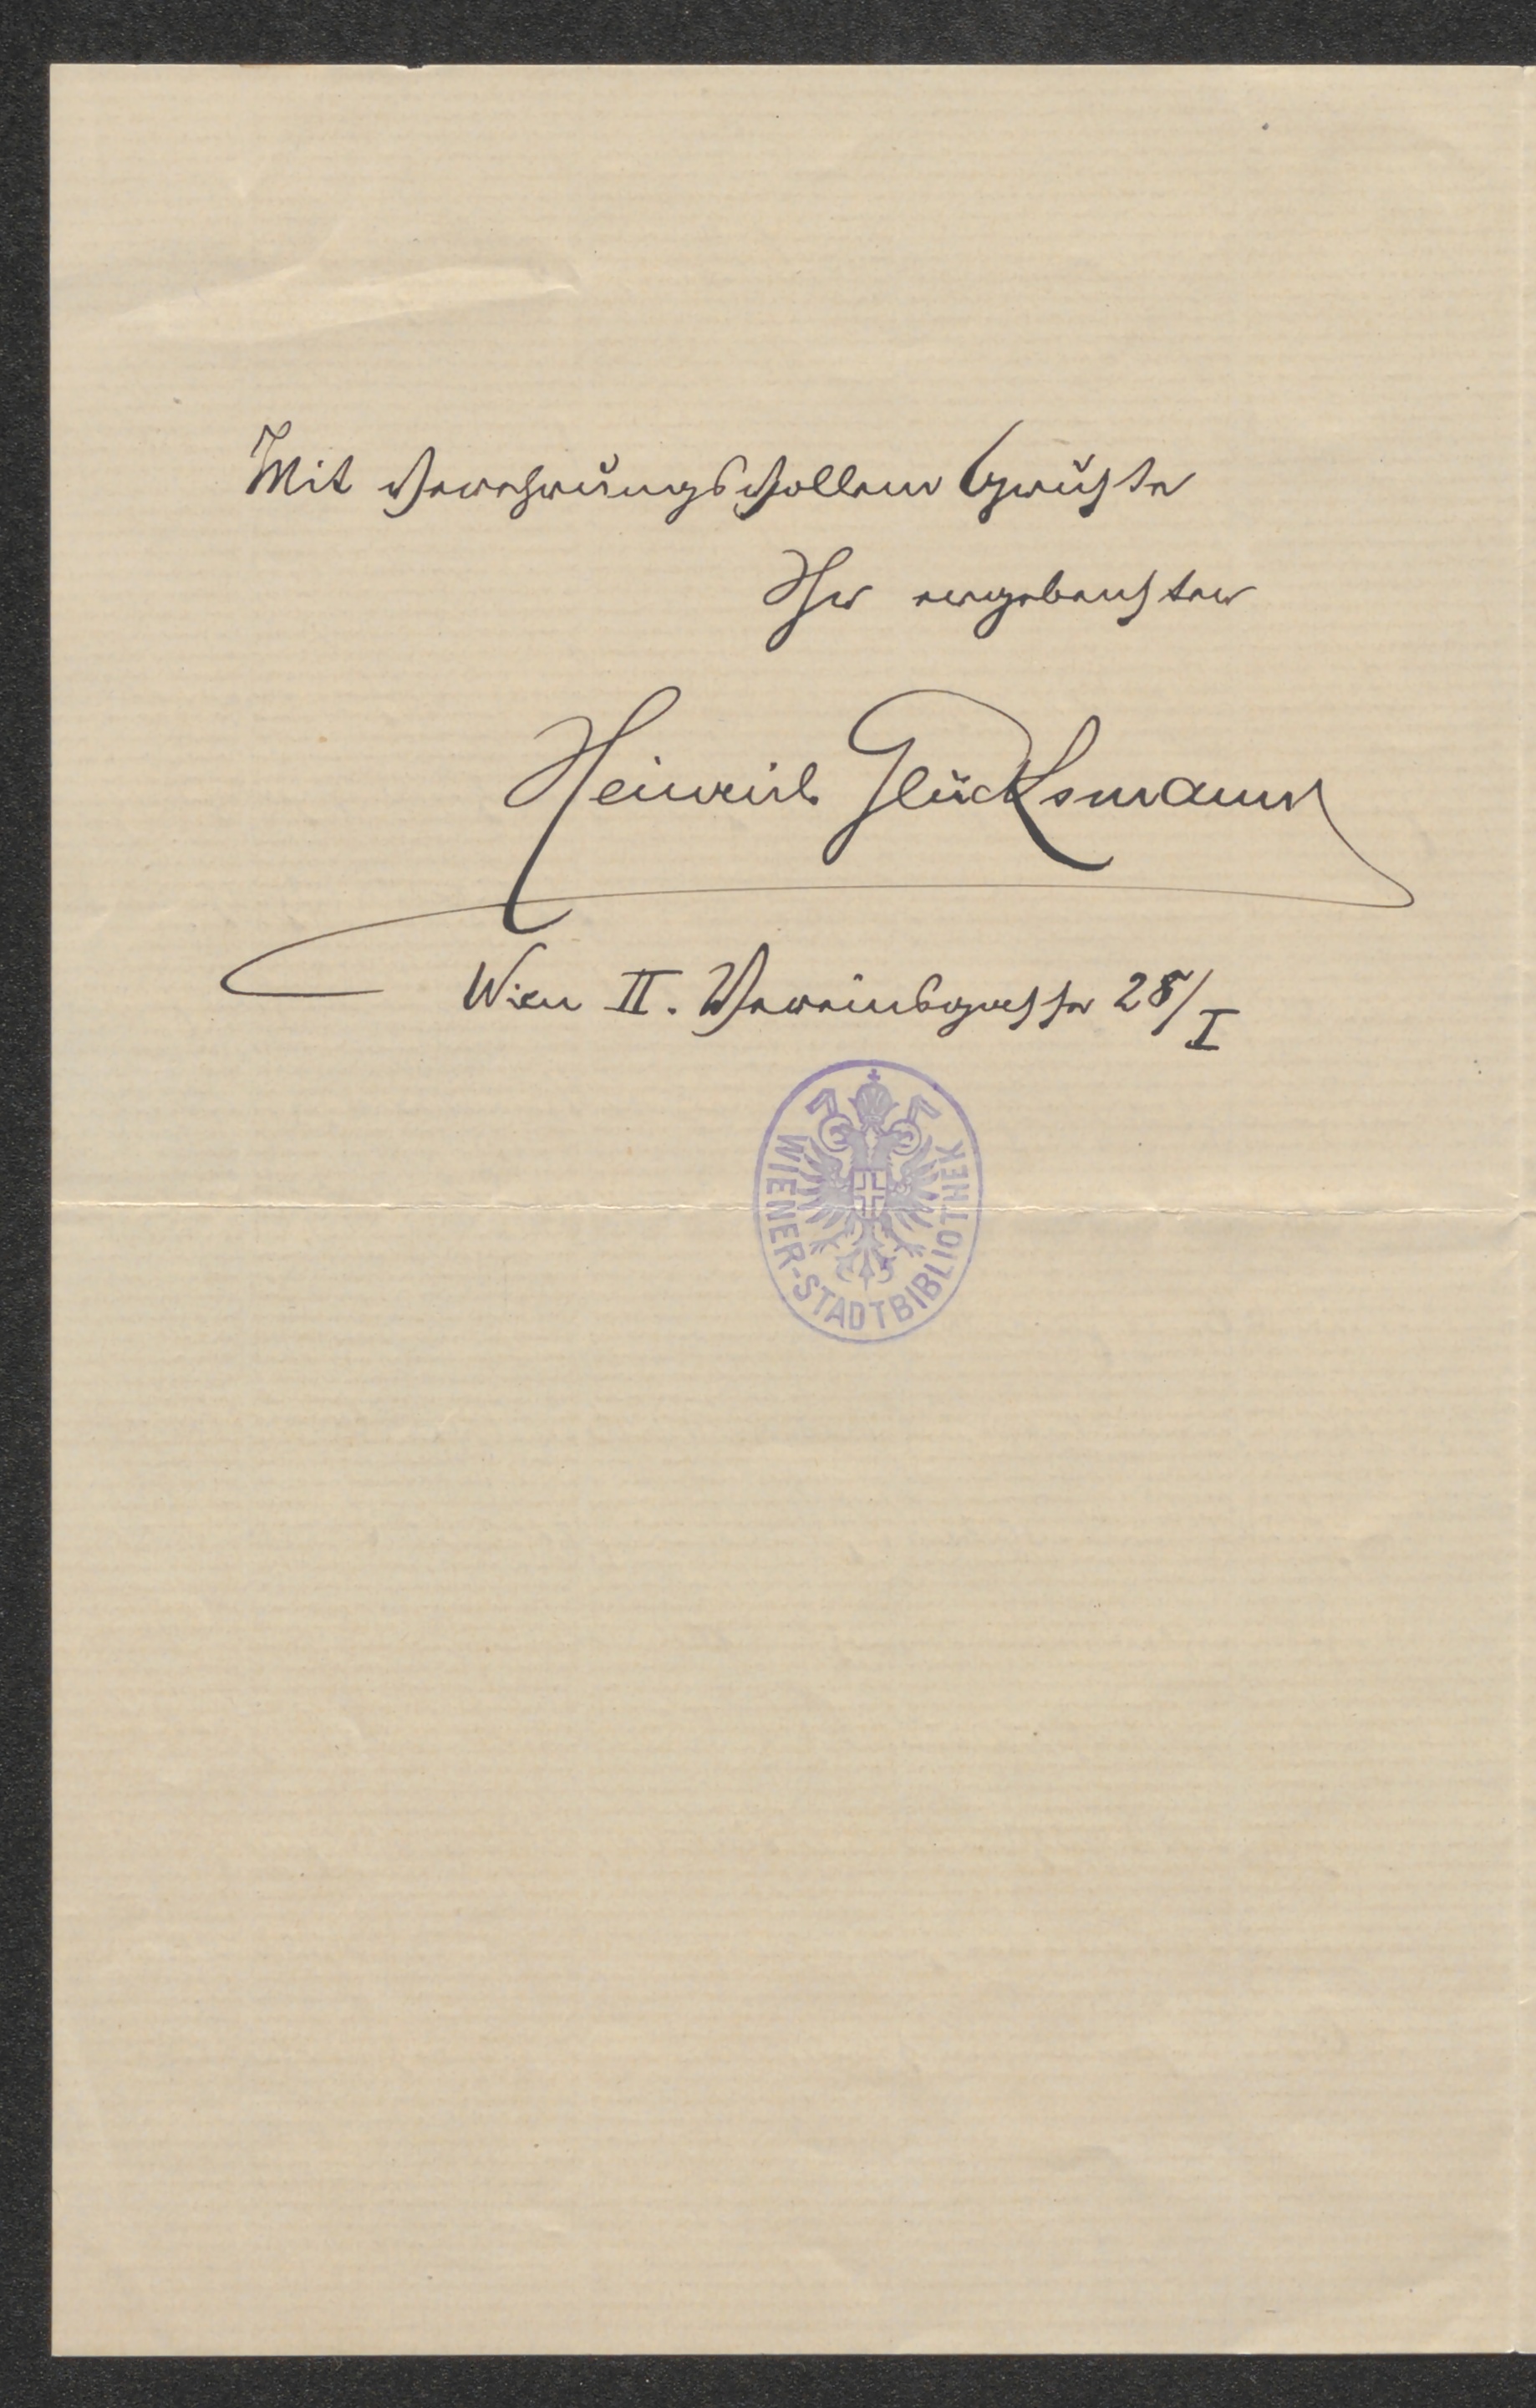 Mit verehrungsvollem Gruße
Ihr ergebenster
Heinrich Glücksmann
Wien II. Vereinsgasse 28/I
WIENER-STADTBIBLIOTHEK